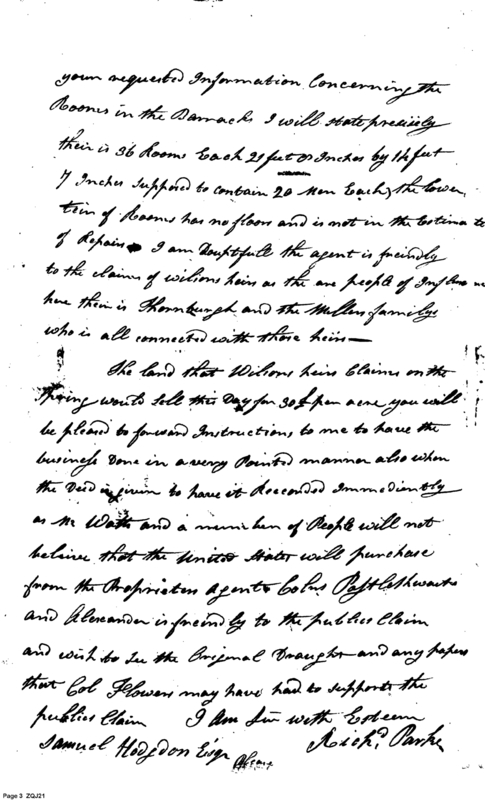 your requested Information Concerning the
Rooms in the Barracks I will state precisely
their is 36 Rooms Each 21 feet 8 Inches by 14 feet
7 Inches supposed to contain 20 Men Each, the lower
teir of Rooms has no floors and is not in the Estimate
of Repairs I am Doubtfull the agent is freindly
to the claims of wilsons heirs as the are people of Influence
here their is Thornburgh and the Millers familys
who is all connected with those heirs —
The land that Wilsons heirs Claims on the
Spring would sell this Day for 30£ per acre you will
be pleased to forward Instructions to me to have the
business Done in a very Pointed manner also when
the Deed is given to have it Reecorded Immediently
as Mr Watts and a number of People will not
beleive that the United States will purchase
from the Proprietors Agents Colns Postlethwaite
and Alexander is freindly to the publics Claim
and wish to See the Original Draught and any papers
that Col Flowers may have had to support the
publics Claim I Am Sir with Esteem
Samuel Hodgdon Esqr Richd Parker
Page 3 ZQJ21